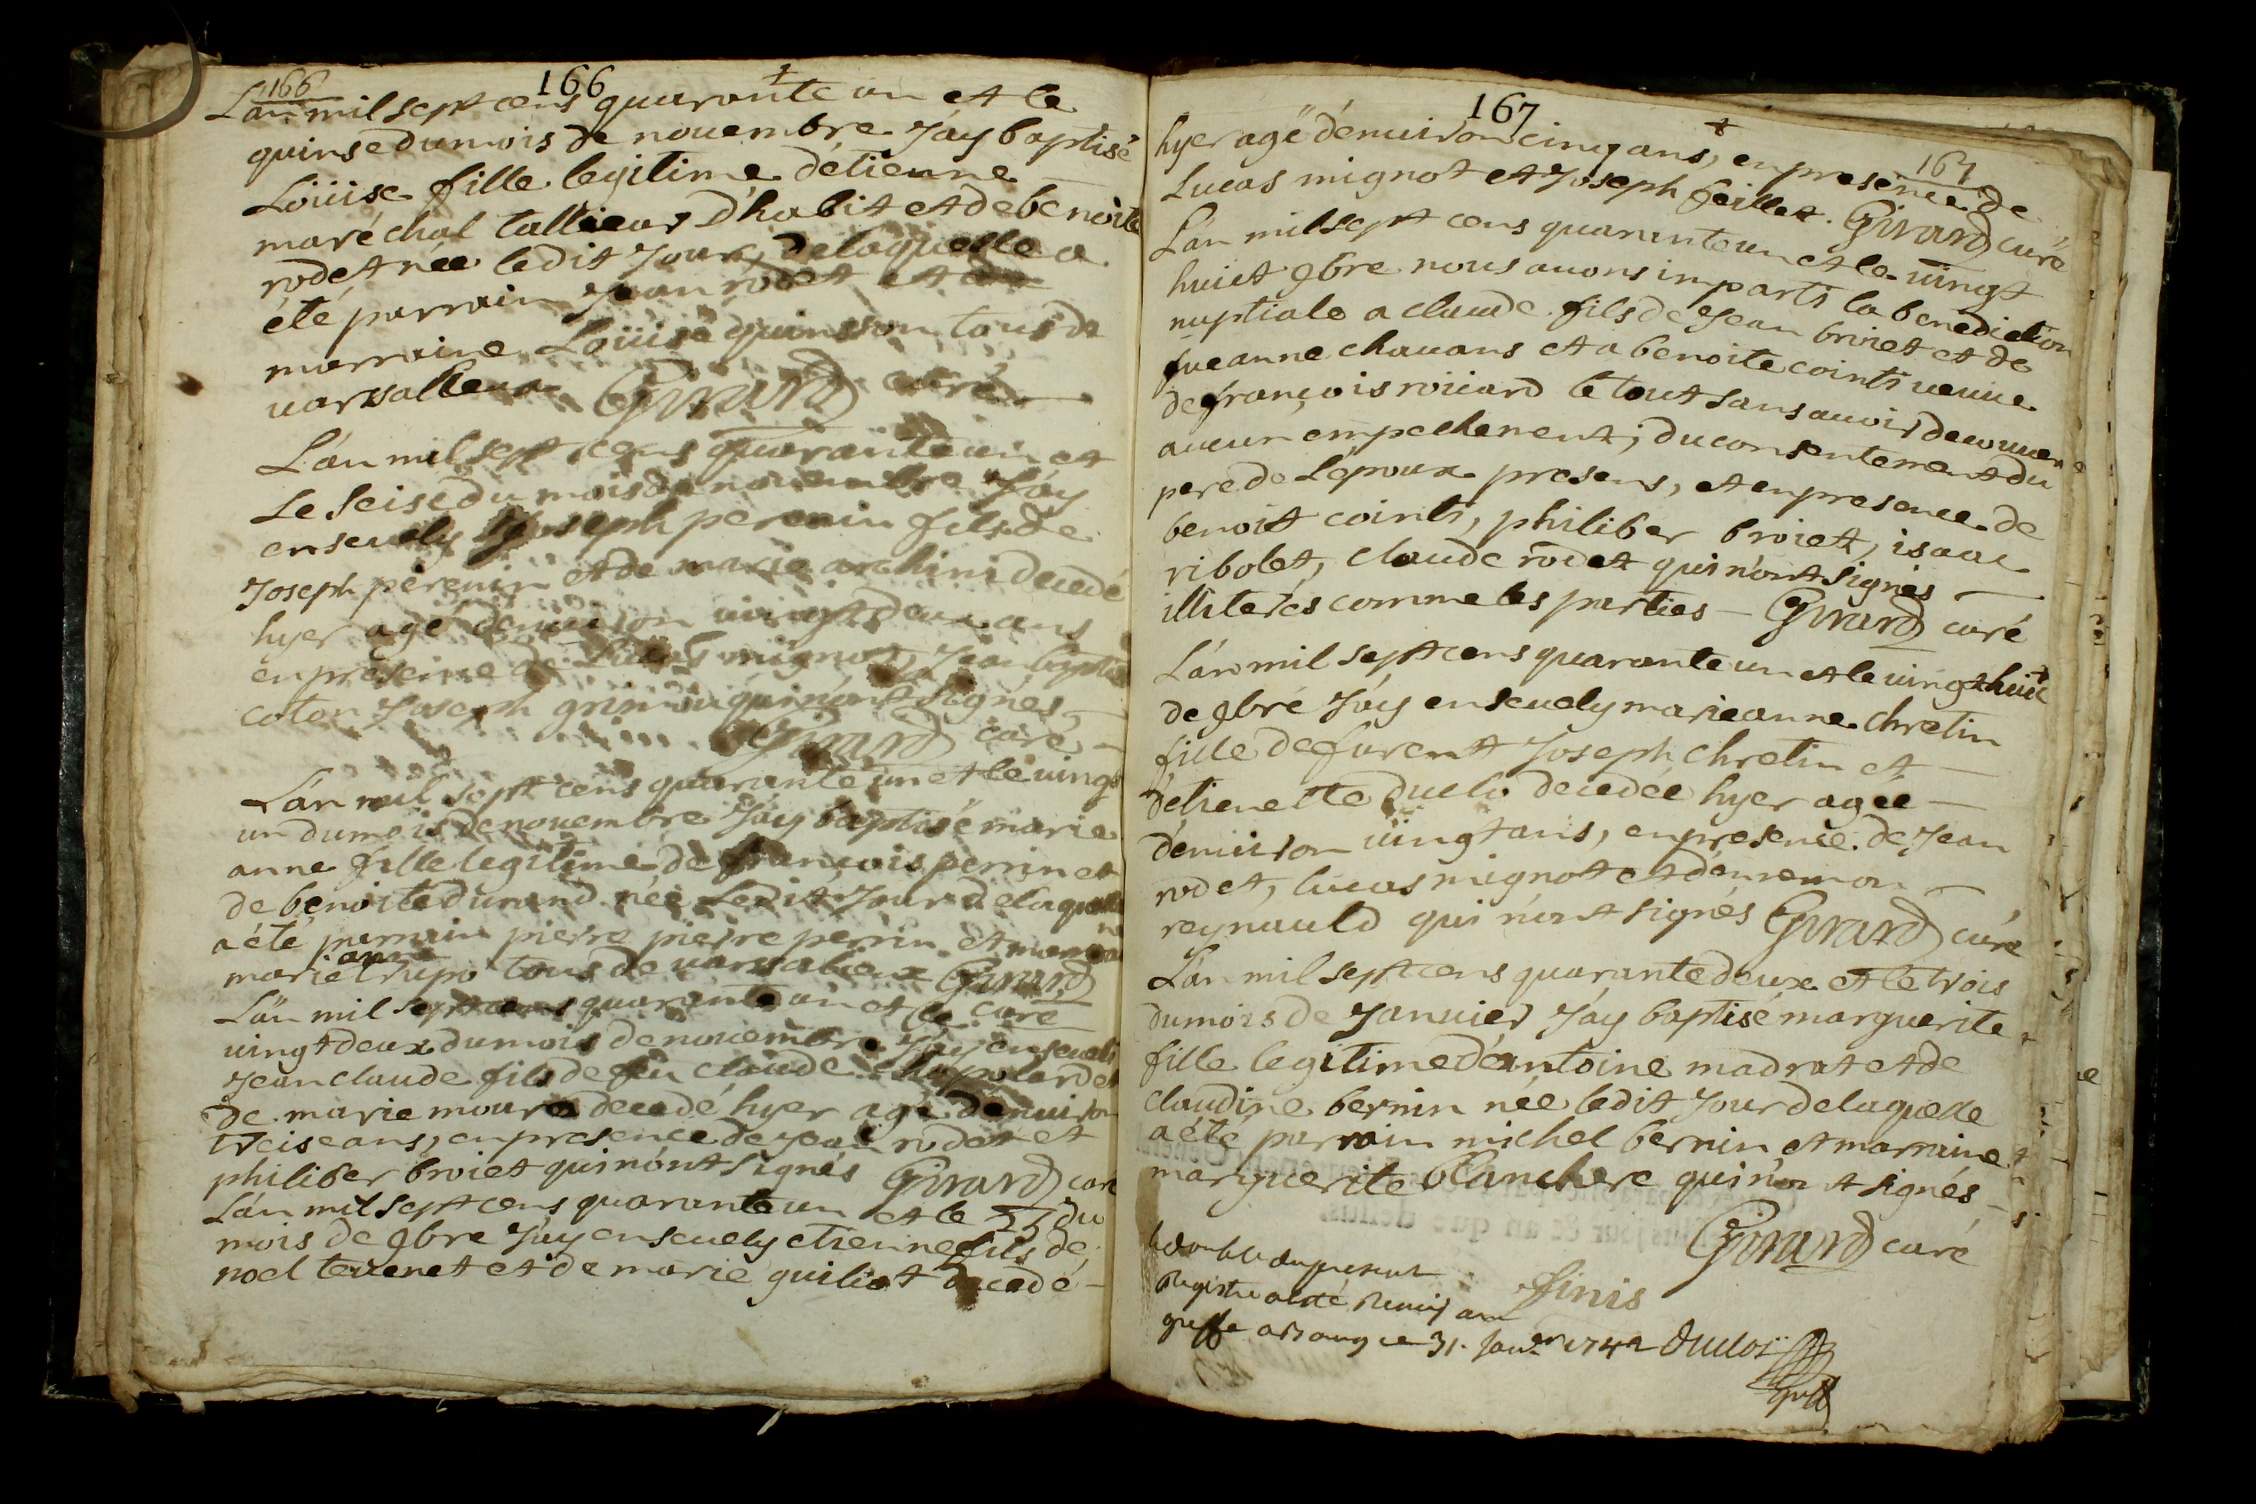 166
166
L'an mil sept cens quarante un et le
quinse du mois de nouembre J'ay baptisé
Loüise fille legitime détienne
maréchal tallieur d'habit et de benoite
rodet née ledit Jour, delaquelle a
été parrain Jean rodet et
marraine Loüise quinsson tous de
uarsallieux Girard curé
L'an mil sept cens quarante un et
Le seise du mois de nouembre J'ay
enseuely Joseph perenin fils de
Joseph perenin et de marie archini decedé
hyer agé d'enuiron uingt deux ans
en presence de Lucas mignot, Jean baptis
coton Joseph qui n'ont signés
Girard curé
L'an mil sept cens quarante un et le uingt
un du mois de nouembre J'ay baptisé marie
anne fille legitime de françois perrin et
de benoite durand née ledit Jour delaquelle
a été parrain pierre pierre perrin et marraine
marie anne trupo tous de uarsalieux Girard
L'an mil sept cens quarante un et le curé
uingt deux du mois de nouembre J'ay enseueli
Jean claude fils de feu claude chapolard et
de marie moura decedé hyer agé d'enuiron
treise ans, en presence de Jean rodet et
philiber broiet qui n'ont signés Girard curé
L'an mil sept cens quarante un et le 23 du
mois de 9bre J'ay enseuely etienne fils de
noel teuenet et de marie guiliot decedé
167
167
hyer agé d'enuiron cinq ans, en presence de
Lucas mignot et Joseph feillet. Girard curé
L'an mil sept cens quarante un et le uingt
huict 9bre nous auons imparti la benediction
nuptiale a claude fils de Jean broiet et de
fue anne chauans et a benoite cointi ueuue
de françois roüard le tout sans auoir decouuert
aucun empechement, du consentement du
pere de L'époux presens, et en presence de
benoit cointi, philiber broiet, isaac
ribolet, claude rodet qui n'ont signés
illiterés comme les parties Girard curé
L'an mil sept cens quarante un et le uingt huict
de 9bré J'ay enseuely marieanne chretin
fille defurent Joseph chretin et
détienette duclo decedée hyer agée
d'enuiron uingt ans, en presence de Jean
rodet, lucas mignot et d'enremon
reynauld qui n'ont signés Girard curé
L'an mil sept cens quarante deux et le trois
du mois de Januier J'ay baptisé marguerite
fille legitime d'éantoine madrat et de
claudine bernin née ledit Jour delaquelle
a été parrain michel bernin et marraine
marguerite blanchere qui n'ont signés
Girard curé
finis
le double du present
Registre a esté Remis au
greffe a Bourg ce 31. Janer 1742 Duclos
greff